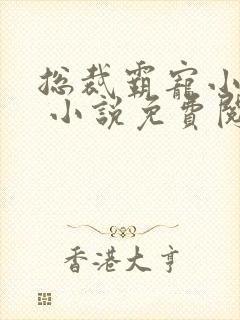 总裁霸宠小
小說免費閱
香港大亨